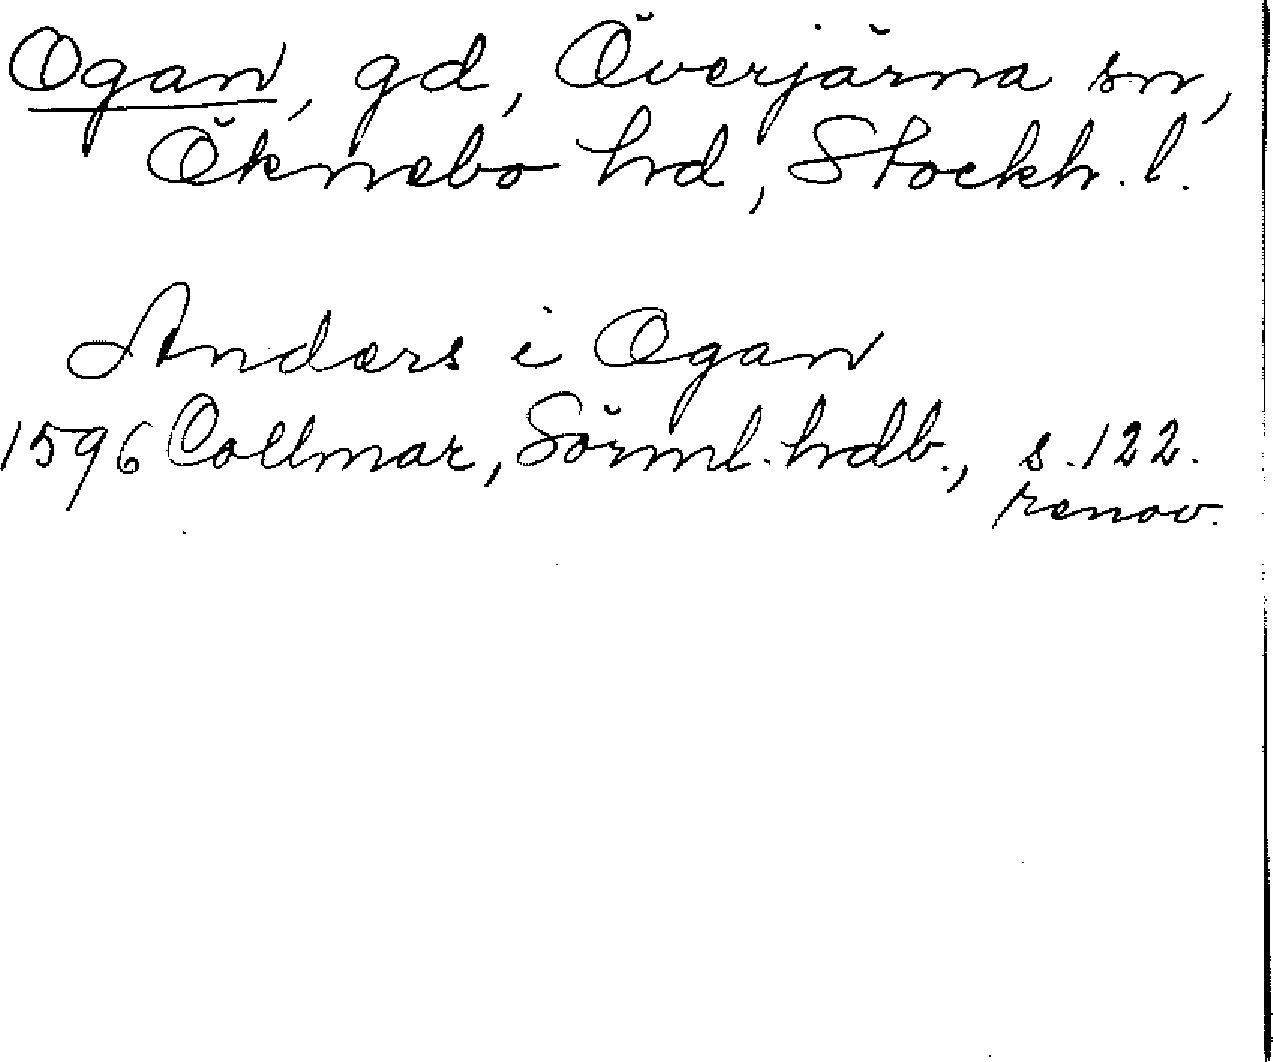 Ogan, gd, Överjärna sn,
Öknebo hd, Stockh. l.
Anders i Ogan
1596 Collmar, Sörml. hdb., s. 122.
renov.